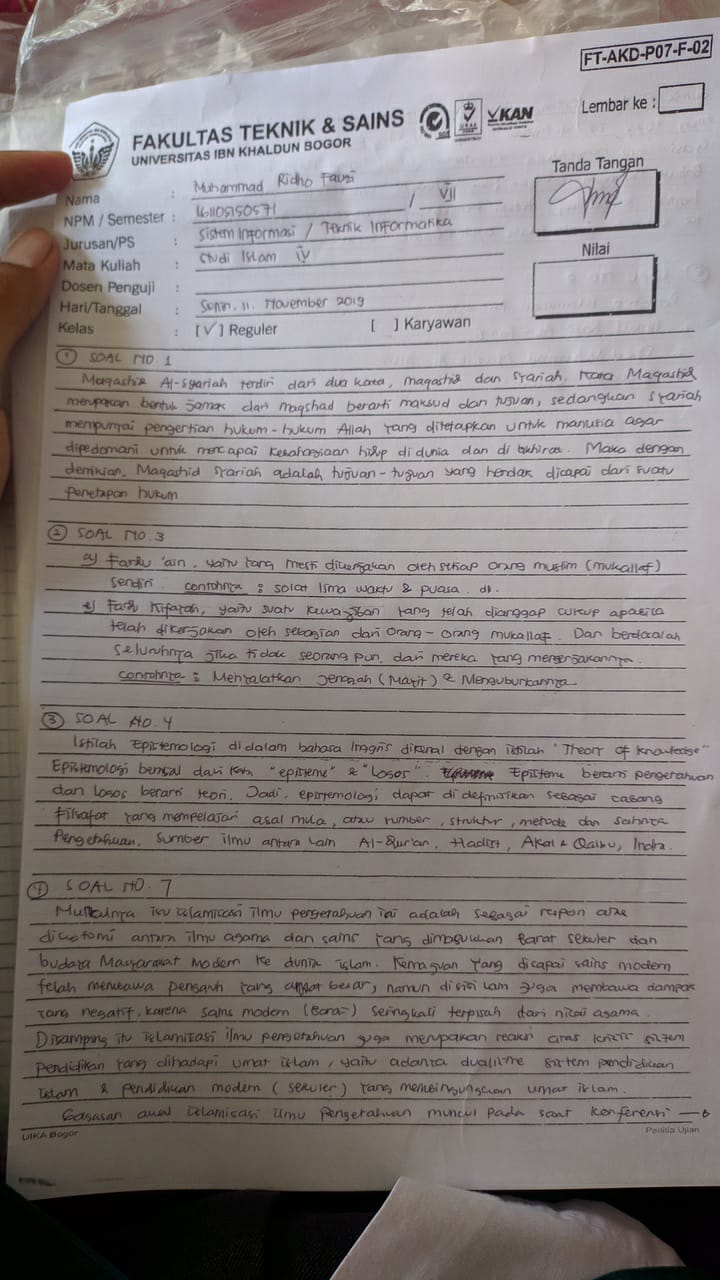 FT-AKD-P07-F-02
FAKULTAS TEKNIK & SAINS
UNIVERSITAS IBN KHALDUN BOGOR
KAN
Lembar ke :
Nama : Muhammad Ridho Fauzi
NPM / Semester : 161105150571 / VII
Jurusan/PS : Sistem Informasi / Teknik Informatika
Mata Kuliah : Studi Islam IV
Dosen Penguji :
Hari/Tanggal : Senin, 11, November 2019
Kelas : [√] Reguler [ ] Karyawan
Tanda Tangan
Nilai
① SOAL NO. 1
Maqashid Al-Syariah terdiri dari dua kata, maqashid dan syariah. Kata Maqashid
merupakan bentuk jamak dari maqshad berarti maksud dan tujuan, sedangkan syariah
mempunyai pengertian hukum-hukum Allah yang ditetapkan untuk manusia agar
dipedomani untuk mencapai kebahagiaan hidup di dunia dan di akhirat. Maka dengan
demikian, Maqashid syariah adalah tujuan-tujuan yang hendak dicapai dari suatu
penetapan hukum.
② SOAL NO. 3
a) Fardu 'ain, yaitu yang mesti dikerjakan oleh setiap orang muslim (mukallaf)
sendiri. contohnya : solat lima waktu & puasa.
b) Fardu kifayah, yaitu suatu kewajiban yang telah dianggap cukup apabila
telah dikerjakan oleh sebagian dari orang-orang mukallaf. Dan berdosalah
seluruhnya jika tidak seorang pun dari mereka yang mengerjakannya.
contohnya : Menyalatkan jenazah (Mayit) & Menguburkannya
③ SOAL NO. 4
Istilah Epistemologi di dalam bahasa Inggris dikenal dengan istilah "Theory of knowledge"
Epistemologi berasal dari kata "episteme" & "Logos". Episteme berarti pengetahuan
dan logos berarti teori. Jadi, epistemologi dapat di definisikan sebagai cabang
Filsafat yang mempelajari asal mula, atau sumber, struktur, metode dan sahnya
Pengetahuan. Sumber ilmu antara lain Al-Qur'an, Hadist, Akal & Qalbu, Indra.
④ SOAL NO. 7
Munculnya isu islamisasi ilmu pengetahuan ini adalah sebagai respon atas
dikotomi antara ilmu agama dan sains yang dimasukkan Barat sekuler dan
budaya Masyarakat modern ke dunia islam. Kemajuan yang dicapai sains modern
telah membawa pengaruh yang amat besar, namun disisi lain juga membawa dampak
yang negatif, karena sains modern (Barat) seringkali terpisah dari nilai agama.
Disamping itu islamisasi ilmu pengetahuan juga merupakan reaksi atas krisis sistem
pendidikan yang dihadapi umat islam, yaitu adanya dualisme sistem pendidikan
islam & pendidikan modern (sekuler) yang membingungkan umat islam.
Gagasan awal islamisasi ilmu pengetahuan muncul pada saat konferensi
UIKA Bogor
Panitia Ujian